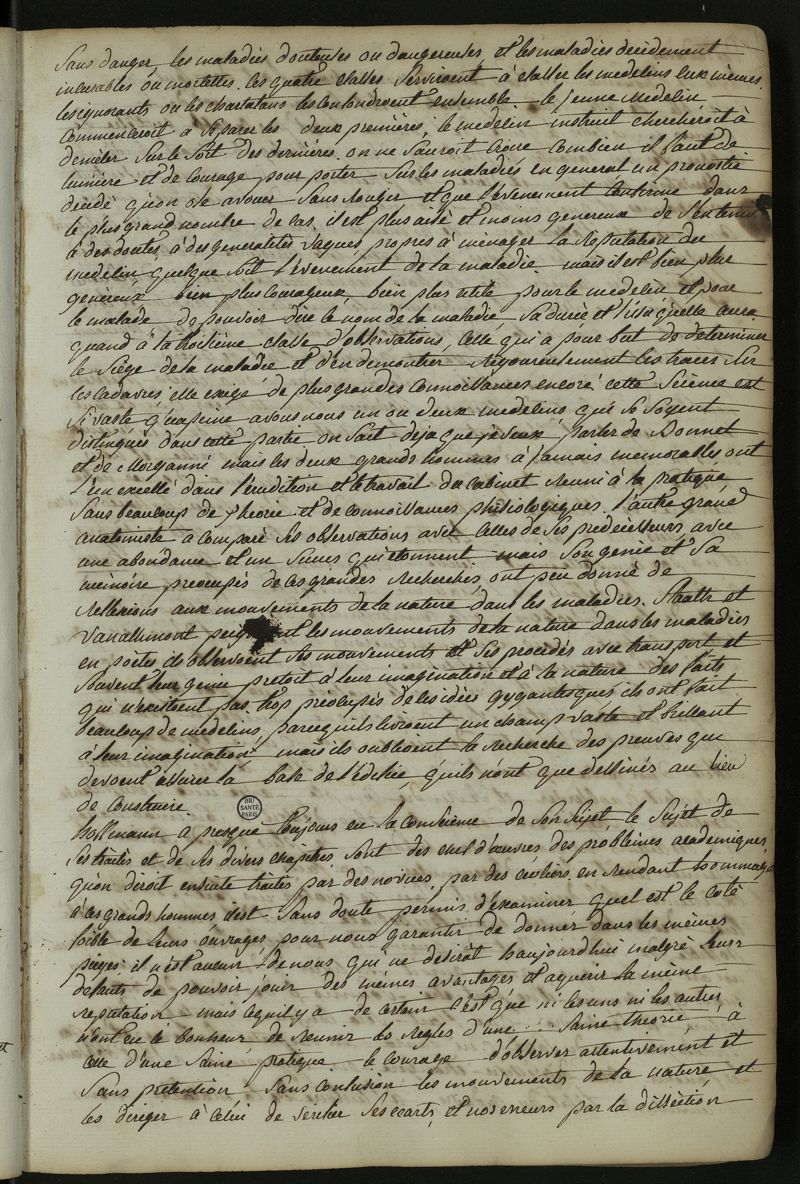 Sans danger, les maladies douteuses ou dangereuses, et les maladies decidement
incurables ou mortelles. ces quatre classes serviroient à classer les medecins eux mèmes.
les ignorants ou les charlatans les confondroient ensemble. le jeune medecin
commenceroit a separer les deux premières, le medecin instruit chercheroit à
demeler sur le sort des dernières. on ne sauroit croire combien il faut de
lumière et de courage pour porter sur les maladies en general un pronostic
décidé qu'on ose avouer sans rougir et que l'évenement confirme dans
le plus grand nombre de cas. il est plus aisé et moins genereux de s'en tenir
à des doutes, à des generalités vagues propres à ménager la reputation du
medecin quelque soit l'évenement de la maladie. mais il est bien plus
genereux bien plus courageux, bien plus utile pour le medecin et pour
le malade de pouvoir dire le nom de la maladie, sa durée et l'issue qu'elle aura
quand à la troisième classe d'observations, celle qui a pour but de determiner
le siège de la maladie et d'en demontrer rigoureusement les traces sur
les cadavres, elle exige de plus grandes connoissances encore. cette science est
si vaste qu'a peine avons nous un ou deux medecins qui se soyent
distingués dans cette partie. on sait deja que je veux parler de Bonnet
et de Morganni mais les deux grands hommes à jamais memorables ont
l'un excellé dans l'érudition et le travail du cabinet reuni à la pratique
sans beaucoup de theorie et de connoissances phisiologiques. l'autre grand
anatomiste a comparé ses observations avec celles de ses predecesseurs avec
une abondance et un succes qui etonnent mais son genie et sa
memoire preocupés de ces grandes recherches, ont peu donné de
reflexions aux mouvements de la nature dans les maladies. Staalh et
Vanhelmont les mouvements de la nature dans les maladies
en poètes ils observoient ses mouvements et ses procedés avec transport et
souvent leur genie pretoit à leur imagination et à la nature des faits
qui n'existoient pas. trop préocupés de les idées gygantesques ils ont fait
beaucoup de medecins, parcequ'ils livroient un champ vaste et brillant
à leur imagination, mais ils oublioient la recherche des preuves qui
devoent assurer la base de l'édifice, qu'ils n'ont que dessinés au lieu
de construire.
BIU
SANTÉ
PARIS
hoffmann a presque toujours eu la conscience de son sujet. le sujet de
ses traités et de ses divers chapitres, sont des chef d'œuvres des problèmes academiques,
qu'on diroit ensuite traités par des novices, par des écoliers. en rendant hommage
à ces grands hommes, il est sans doute permis d'examiner quel est le coté
foible de leurs ouvrages pour nous garantir de donner dans les mèmes
pièges. il n'est aucun de nous qui ne desirât haujourd'hui malgré leurs
defauts de pouvoir jouir des mèmes avantages et aquerir la mème
reputation. mais ce qu'il y a de certain c'est que ni les uns ni les autres
n'ont eu le bonheur de reunir les règles d'une saine theorie, à
celle d'une saine pratique. le courage d'observer attentivement et
sans pretention sans confusion les mouvements de la nature et
les diriger à celui de verifier ses ecarts, et nos erreurs par la dissection